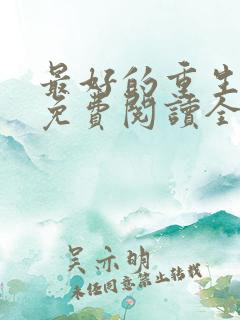 最好的重生
免費閱讀全
吴亦明
未经同意禁止转载